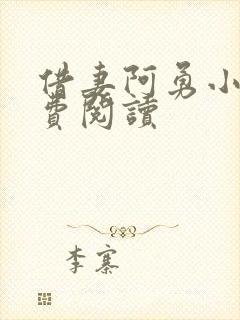 借妻阿勇小
費閱讀
李寨